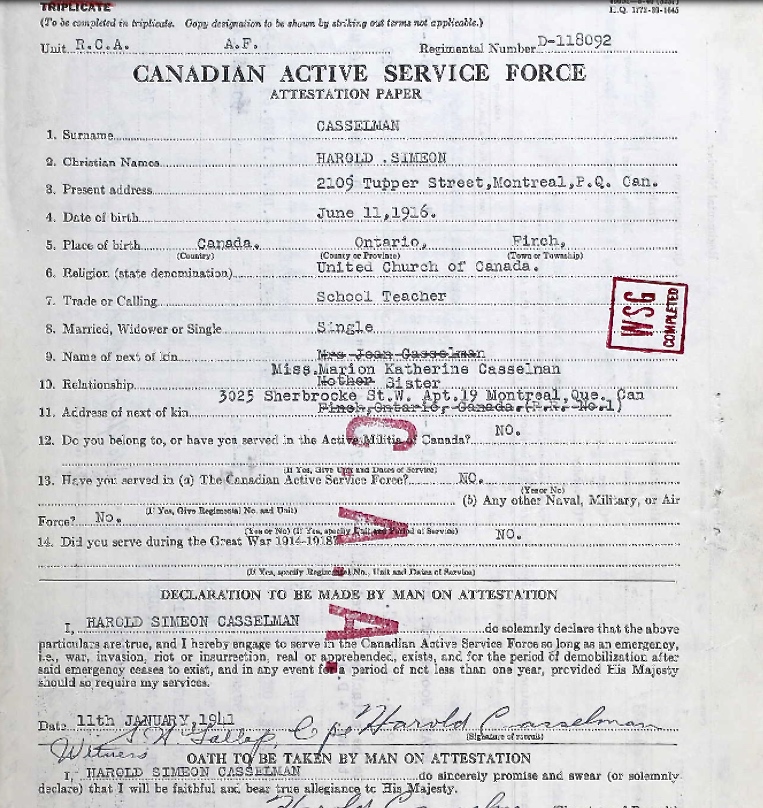 TRIPLICATE
H.Q. 1772-39-1645
(To be completed in triplicate. Copy designation to be shown by striking out terms not applicable.)
Unit R.C.A. A.F. Regimental Number D-118092
CANADIAN ACTIVE SERVICE FORCE
ATTESTATION PAPER
1. Surname CASSELMAN
2. Christian Names HAROLD SIMEON
3. Present address 2109 Tupper Street,Montreal,P.Q. Can.
4. Date of birth June 11,1916.
5. Place of birth Canada. Ontario, Finch,
(Country) (County or Province) (Town or Township)
6. Religion (state denomination) United Church of Canada.
7. Trade or Calling School Teacher
8. Married, Widower or Single Single
9. Name of next of kin Mrs Jean Casselman
Miss.Marion Katherine Casselman
10. Relationship Mother Sister
3025 Sherbrocke St.W. Apt.19 Montreal,Que. Can
11. Address of next of kin Finch,Ontario, Canada.(R.R. No.1)
12. Do you belong to, or have you served in the Active Militia of Canada? NO.
(If Yes, Give Unit and Dates of Service)
13. Have you served in (a) The Canadian Active Service Force? NO.
(Yes or No)
(b) Any other Naval, Military, or Air
(If Yes, Give Regimental No. and Unit)
Force? No.
(Yes or No) (If Yes, specify Unit and Period of Service)
14. Did you serve during the Great War 1914-1918? NO.
(If Yes, specify Regimental No., Unit and Dates of Service)
WSG
COMPLETED
A. V. C
DECLARATION TO BE MADE BY MAN ON ATTESTATION
I, HAROLD SIMEON CASSELMAN do solemnly declare that the above
particulars are true, and I hereby engage to serve in the Canadian Active Service Force so long as an emergency,
i.e., war, invasion, riot or insurrection, real or apprehended, exists, and for the period of demobilization after
said emergency ceases to exist, and in any event for a period of not less than one year, provided His Majesty
should so require my services.
Date 11th JANUARY,1941 Harold Casselman
(Signature of recruit)
Witness
OATH TO BE TAKEN BY MAN ON ATTESTATION
I, HAROLD SIMEON CASSELMAN do sincerely promise and swear (or solemnly
declare) that I will be faithful and bear true allegiance to His Majesty.
Harold Casselman